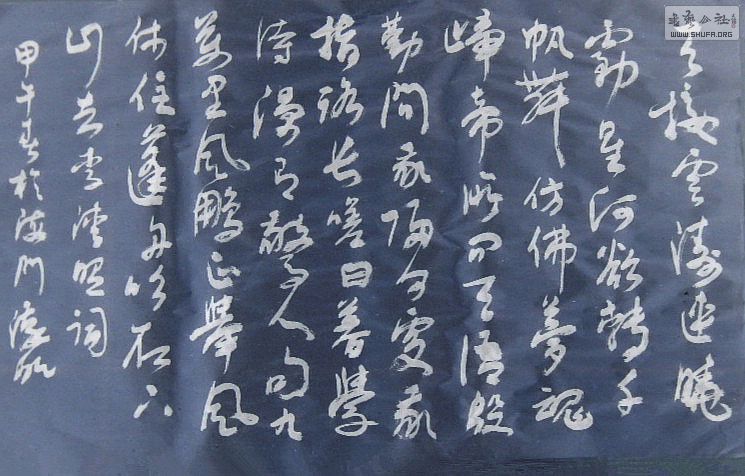 天接雲濤連曉
霧星河欲轉千
帆舞仿佛夢魂
歸帝所聞天語殷
勤問我歸何處我
報路長嗟日暮學
詩漫有驚人句九
萬里風鵬正舉風
休住蓬舟吹取三
山去李清照詞
甲午春於海門
公社
WWW.SHUFA.ORG